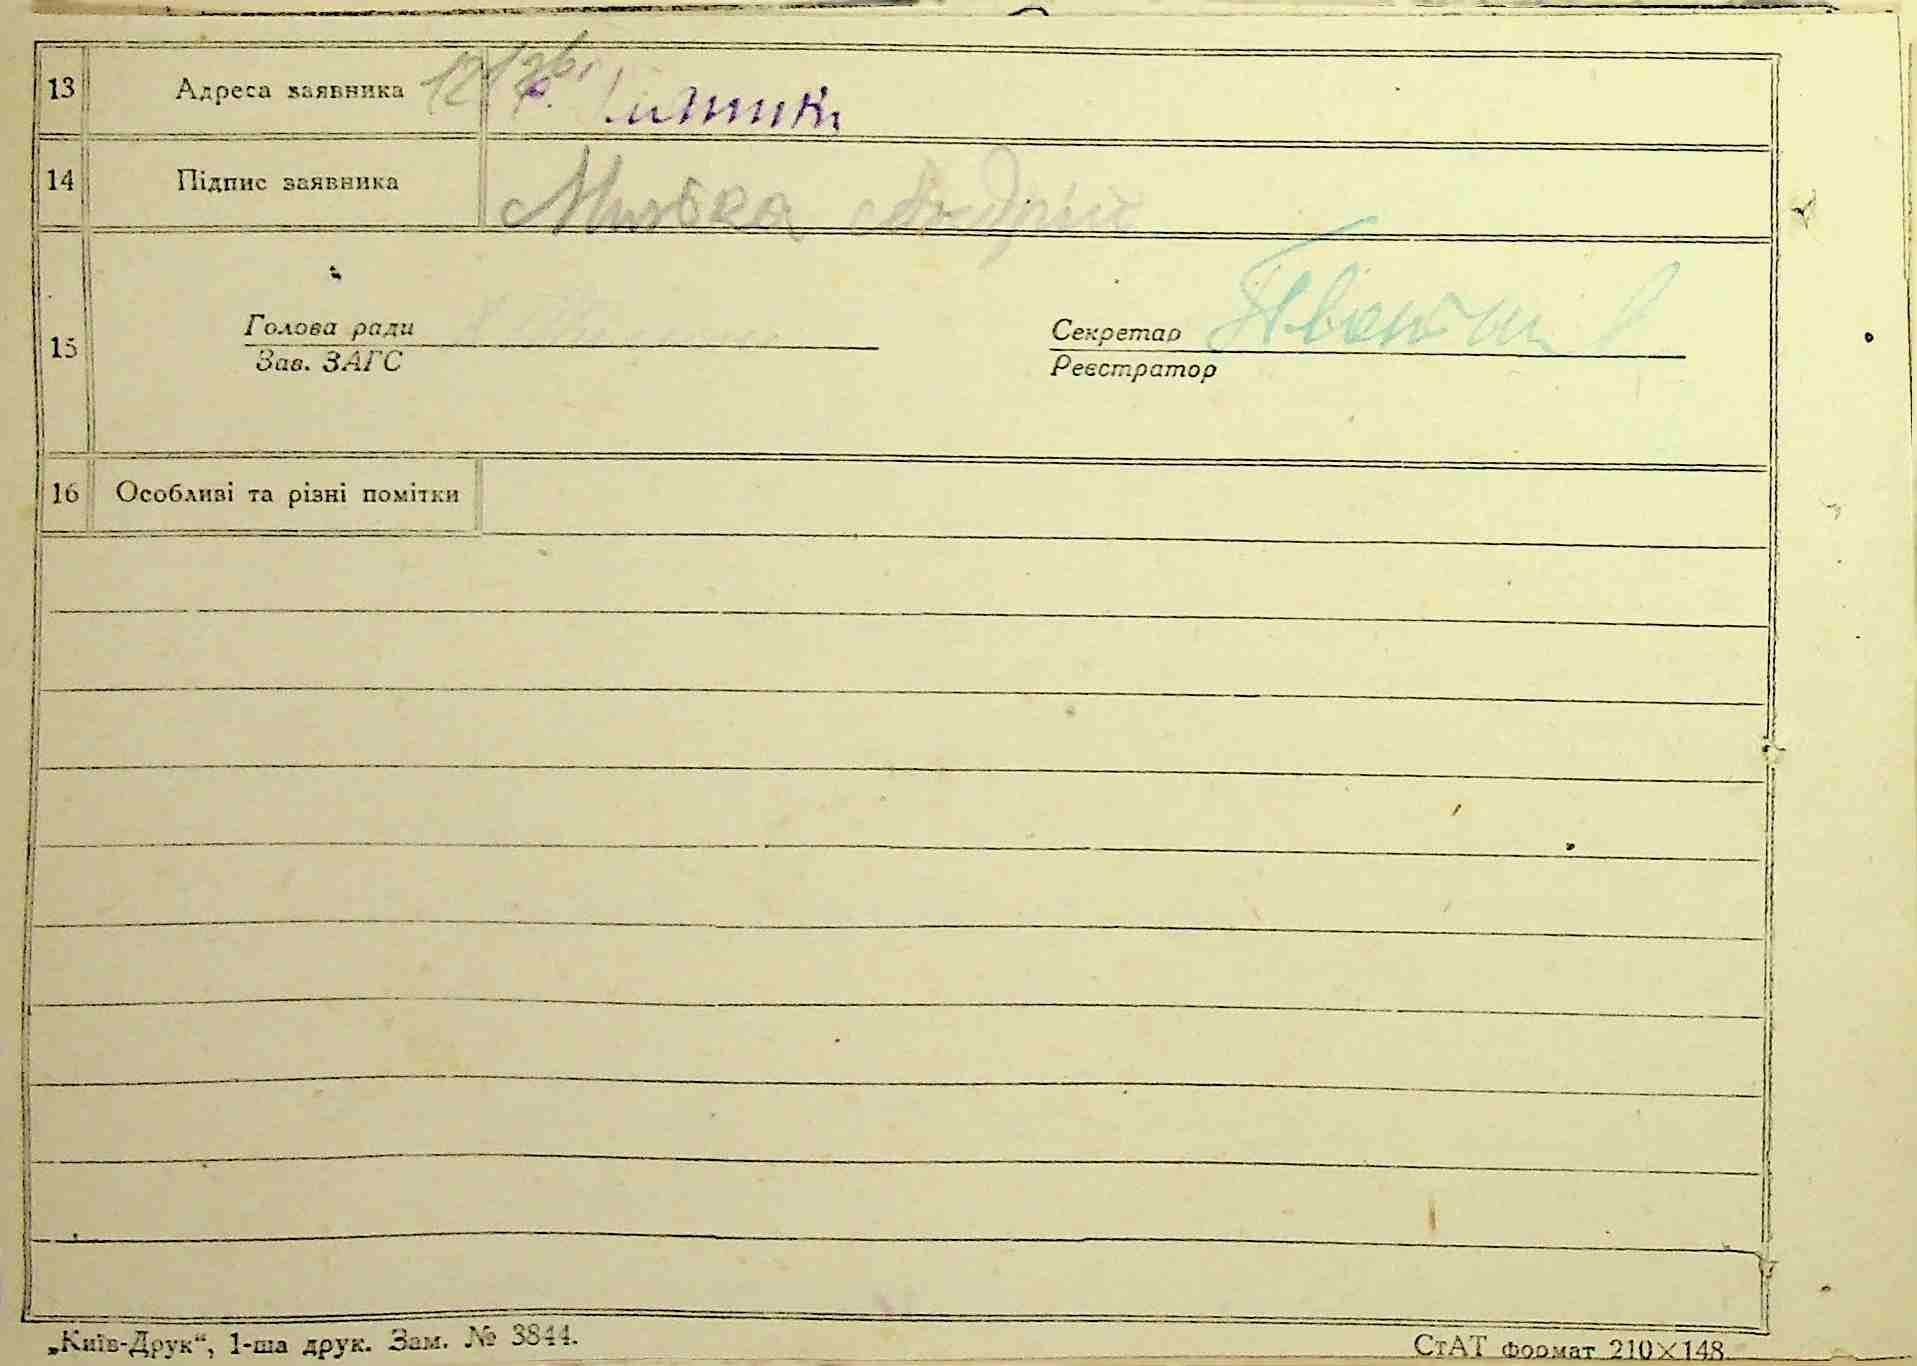 13 Адреса заявника
14 Підпис заявника Андрій
15 Голова ради Секретар
Зав. ЗАГС Реєстратор
16 Особливі та різні помітки
„Київ-Друк“, 1-ша друк. Зам. № 3844. СтАТ формат 210×148